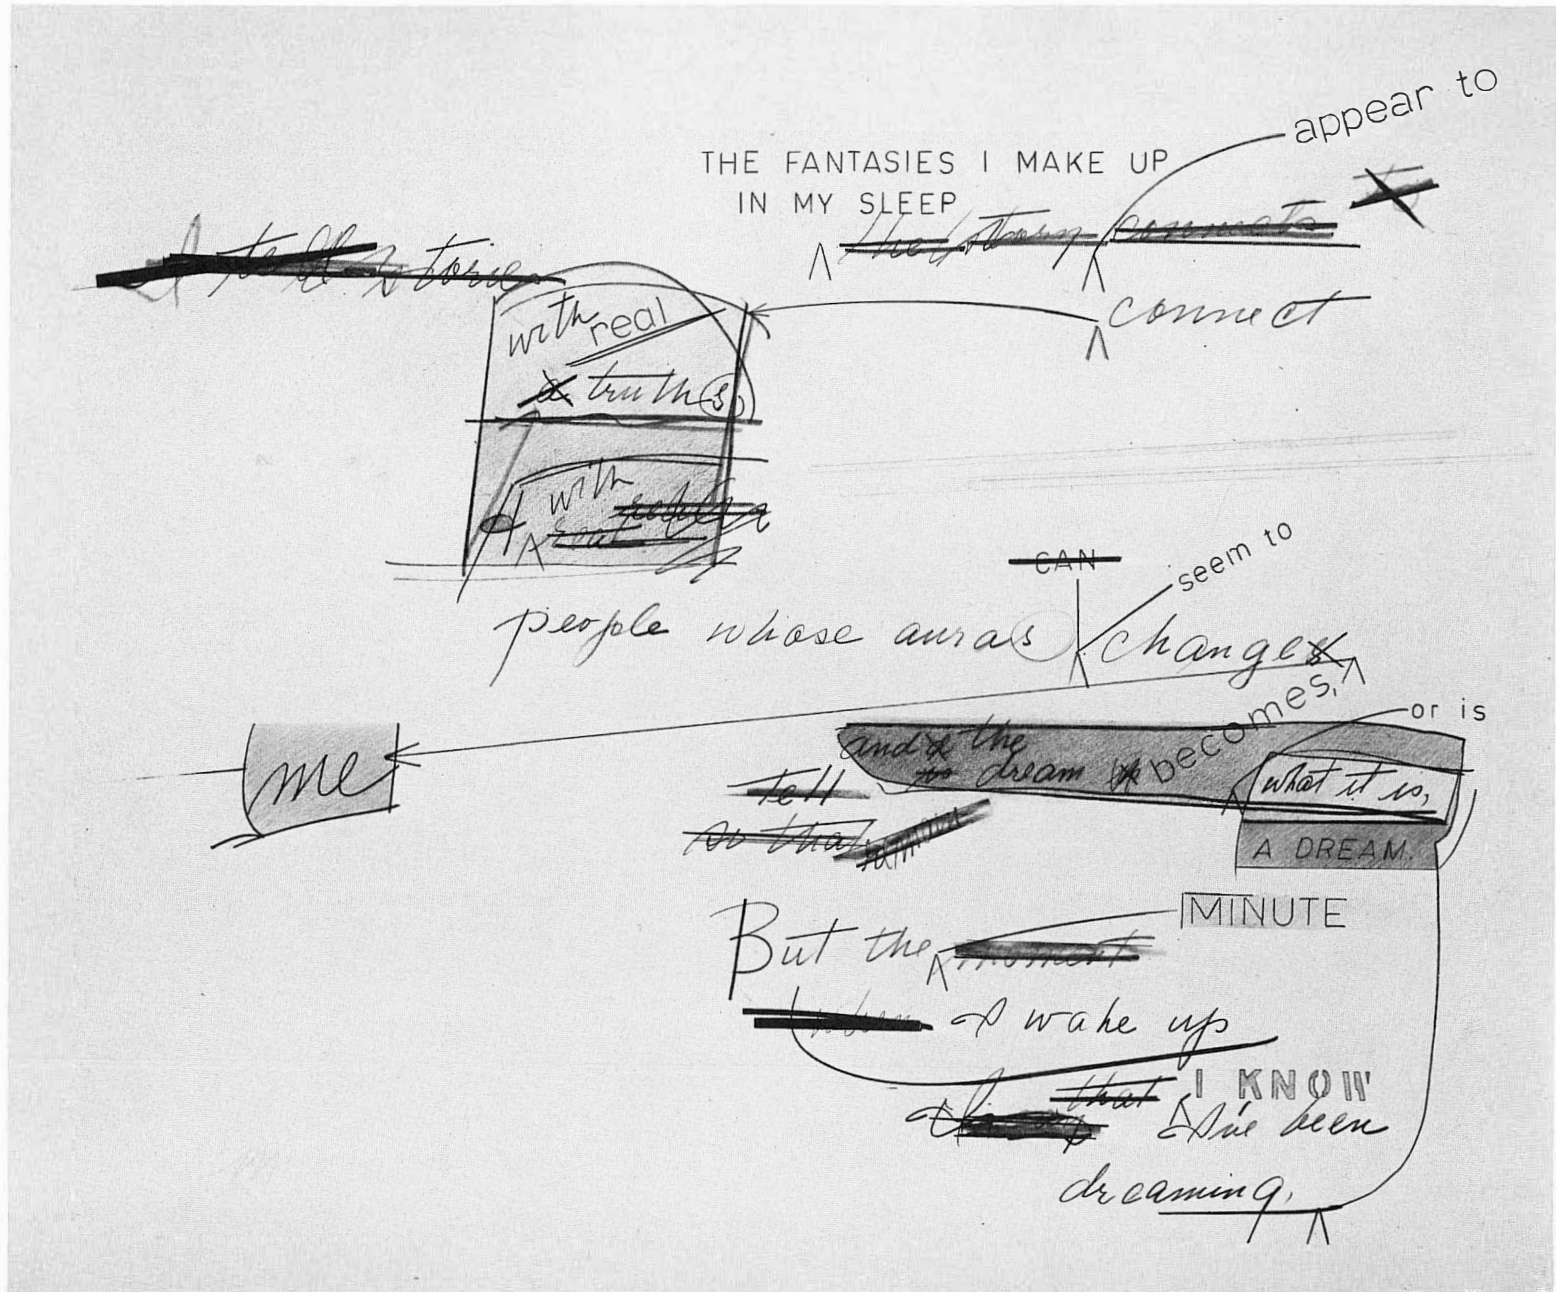 appear to
THE FANTASIES I MAKE UP
IN MY SLEEP
the story connects to
I tell stories
connect
with real
a truths
with
real
CAN
seem to
people whose auras changes
becomes,
or is
me
and the
dream
what it is,
tell
so that
A DREAM.
MINUTE
But the moment
when I wake up
that I KNOW
I've been
dreaming.